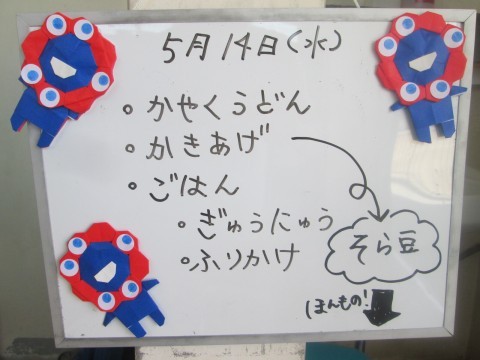 5月14日(水)
。かやくうどん
。かきあげ
。ごはん
。ぎゅうにゅう
。ふりかけ
そら豆
ほんもの!